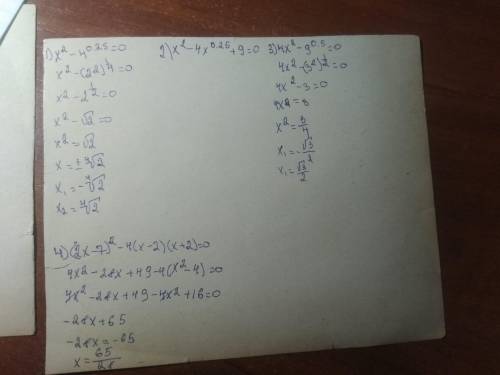 1) x² - 4^0.25 = 0
x² - (2²)^1/4 = 0
x² - 2^1/2 = 0
x² - √2 = 0
x² = √2
x = ± ⁴√2
x₁ = - ⁴√2
x₂ = ⁴√2
2) x² - 4x^0.25 + 9 = 0
3) 4x² - 9^0.5 = 0
4x² - (3²)^1/2 = 0
4x² - 3 = 0
4x² = 3
x² = 3/4
x₁ = - √3/2
x₁ = √3/2
4) (2x - 7)² - 4(x - 2)(x + 2) = 0
4x² - 28x + 49 - 4(x² - 4) = 0
4x² - 28x + 49 - 4x² + 16 = 0
-28x + 65
-28x = -65
x = 65/28